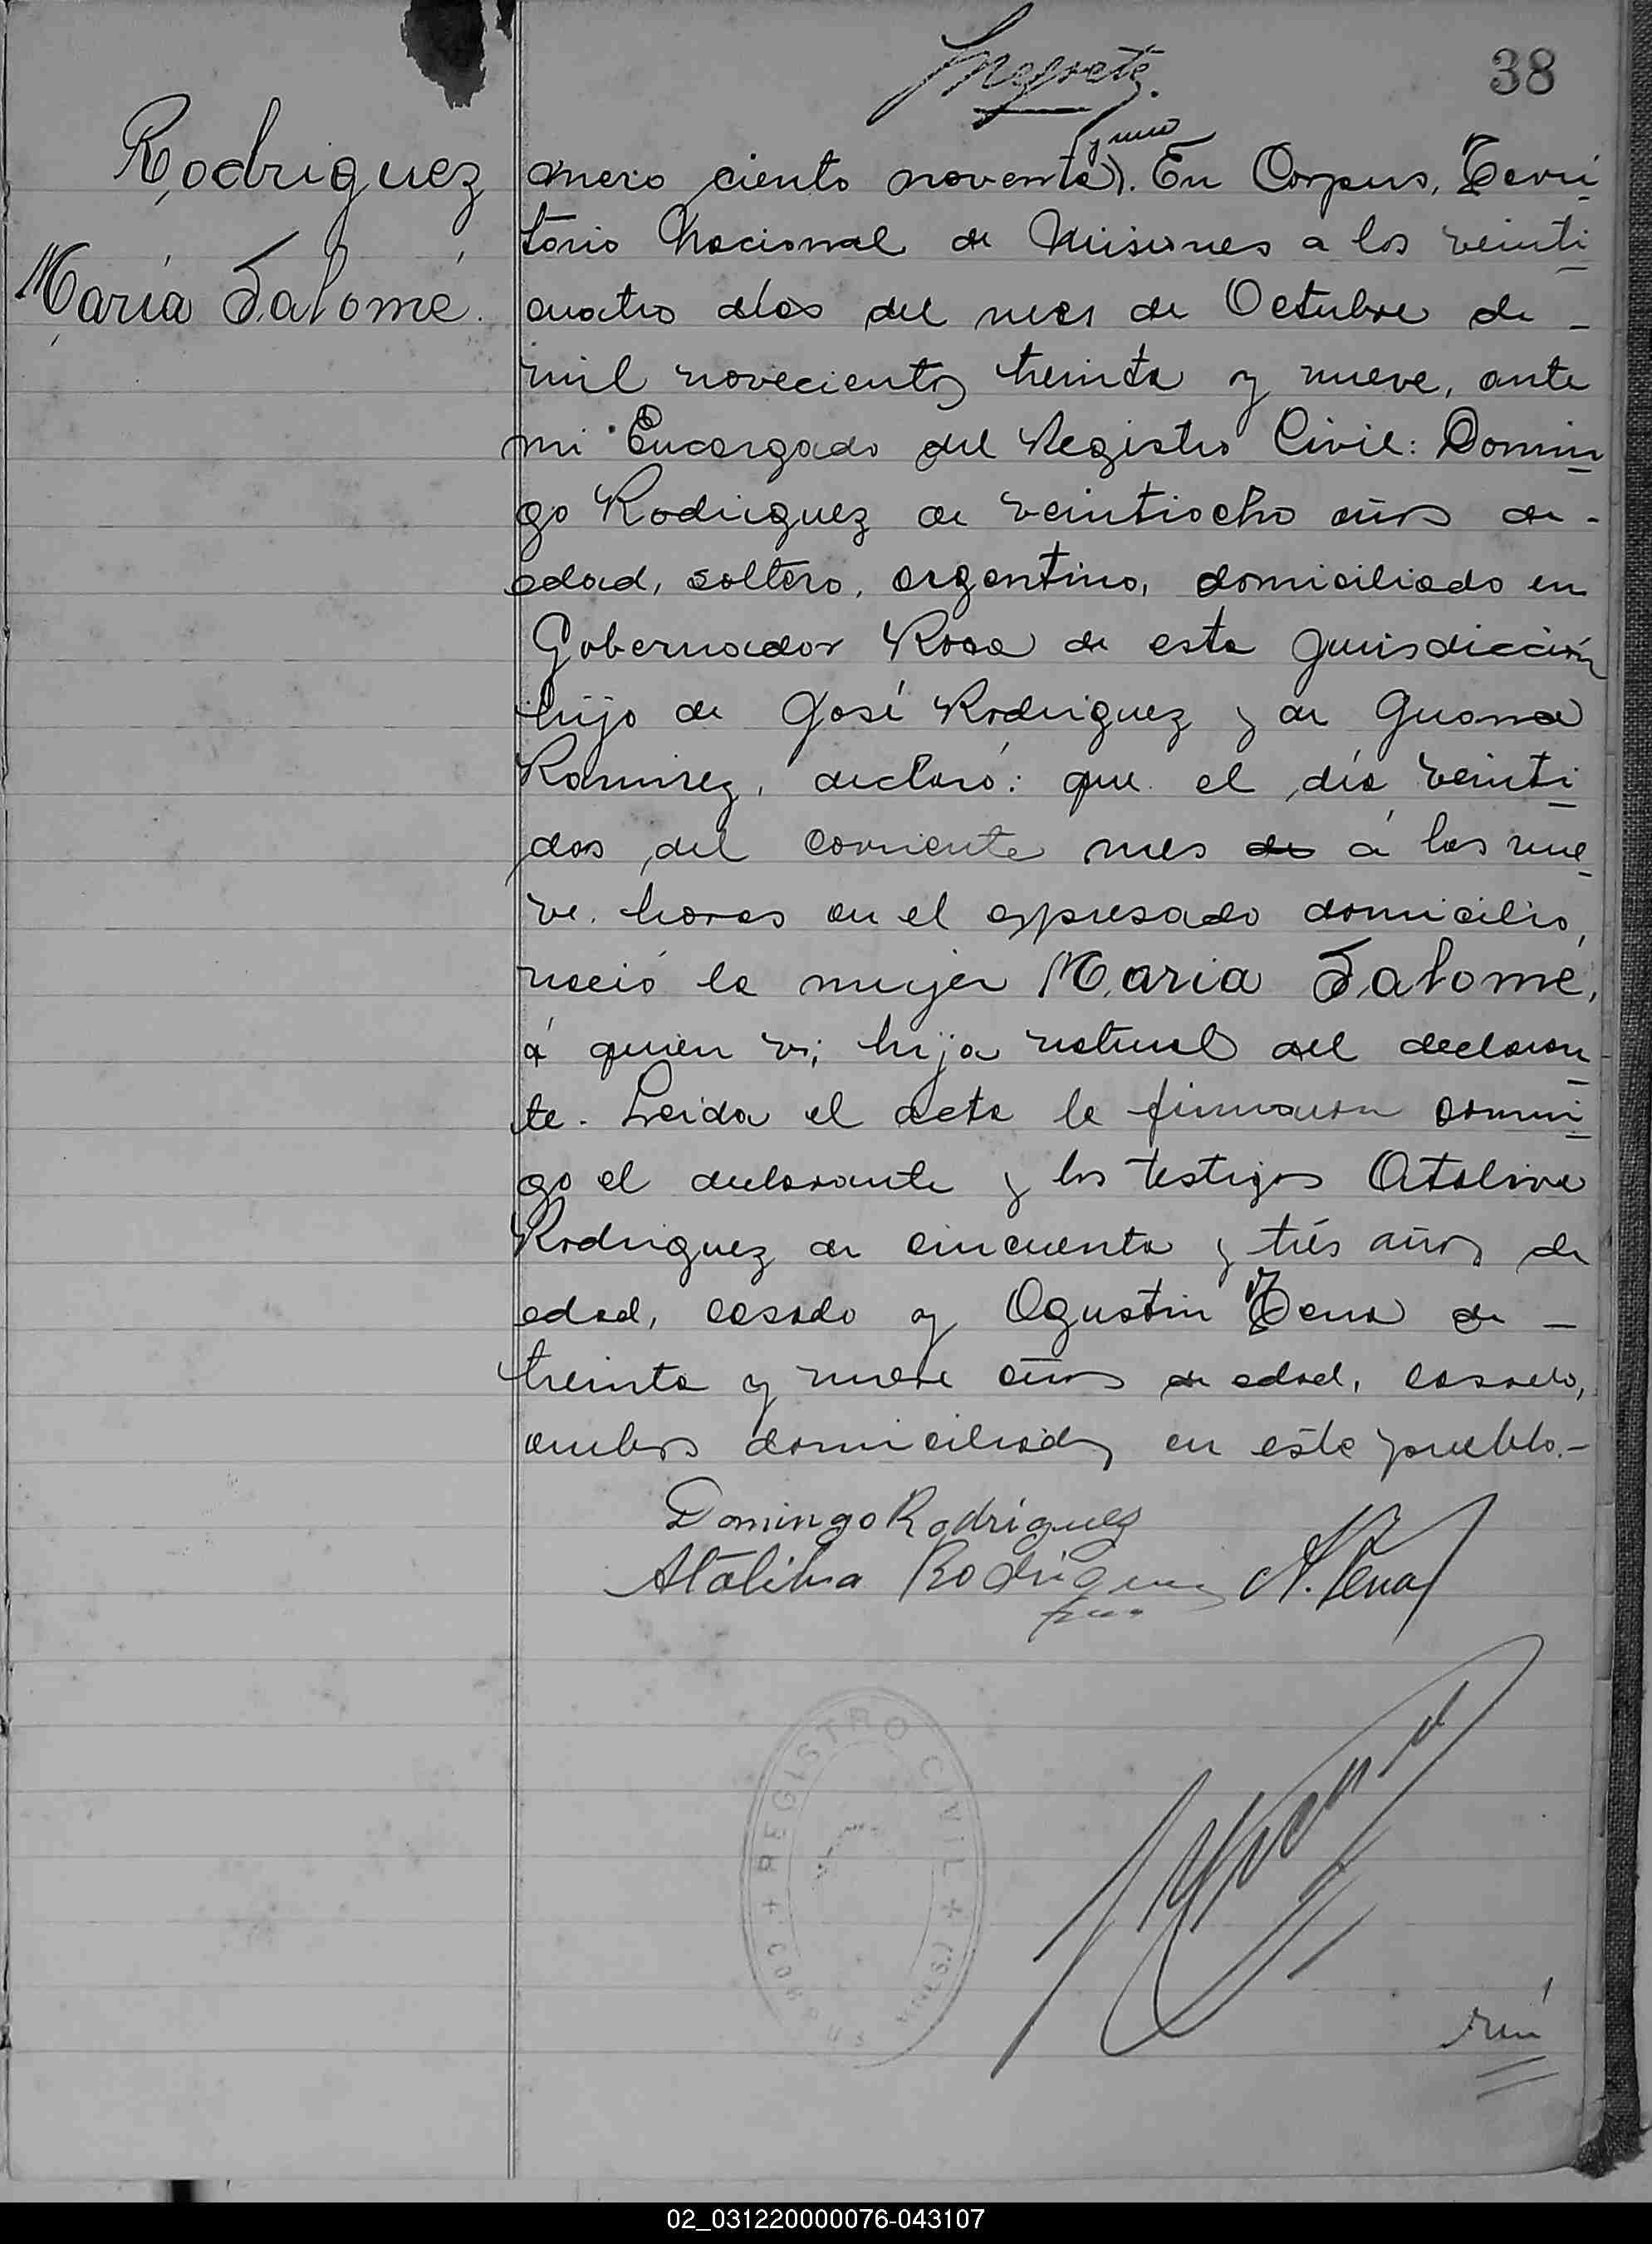 38
Rodriguez
María Salomé.
y uno
úmero ciento noventa). En Corpus, Terri
torio Nacional de Misiones a los veinti
cuatro días del mes de Octubre de -
mil novecientos treinta y nueve, ante
mi Encargado del Registro Civil: Domin
go Rodriguez de veintiocho años de -
edad, soltero, argentino, domiciliado en
Gobernador Roca de esta jurisdicción
hijo de José Rodriguez y de Juana
Ramirez, declaró: que el día veinti
dos del corriente mes de á las nue
ve horas en el expresado domicilio,
nació la mujer María Salomé,
á quien vi; hija natural del declaran
te. Leida el acta la firmaron conmi
go el declarante y los testigos Ataliva
Rodriguez de cincuenta y trés años de
edad, casado y Agustin Tena de -
treinta y nueve años de edad, casado,
ambos domiciliados en este pueblo.-
Domingo Rodriguez
Ataliba Rodriguez A. Tena
REGISTRO CIVIL
+ CORPUS (MNES.) +